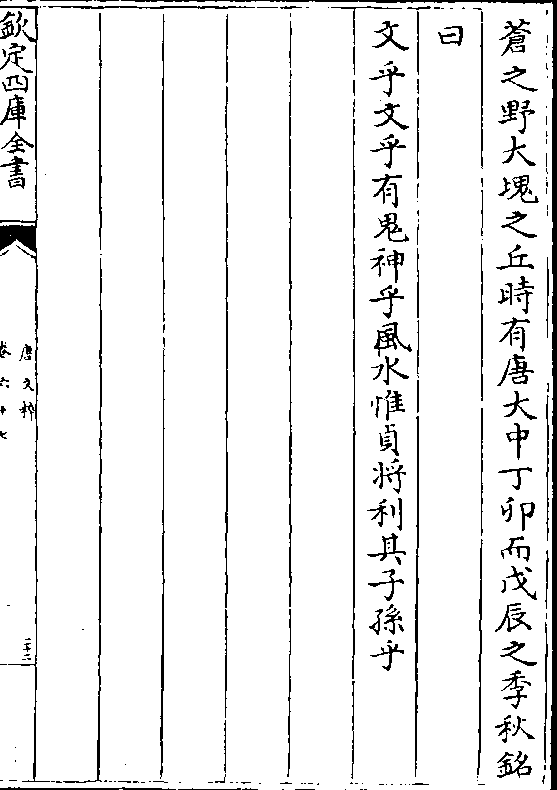 蒼之野大塊之丘時有唐大中丁卯而戊辰之季秋銘
曰
文乎文乎有鬼神乎風水惟貞將利其子孫乎
欽定四庫全書
唐文粹
卷六十七